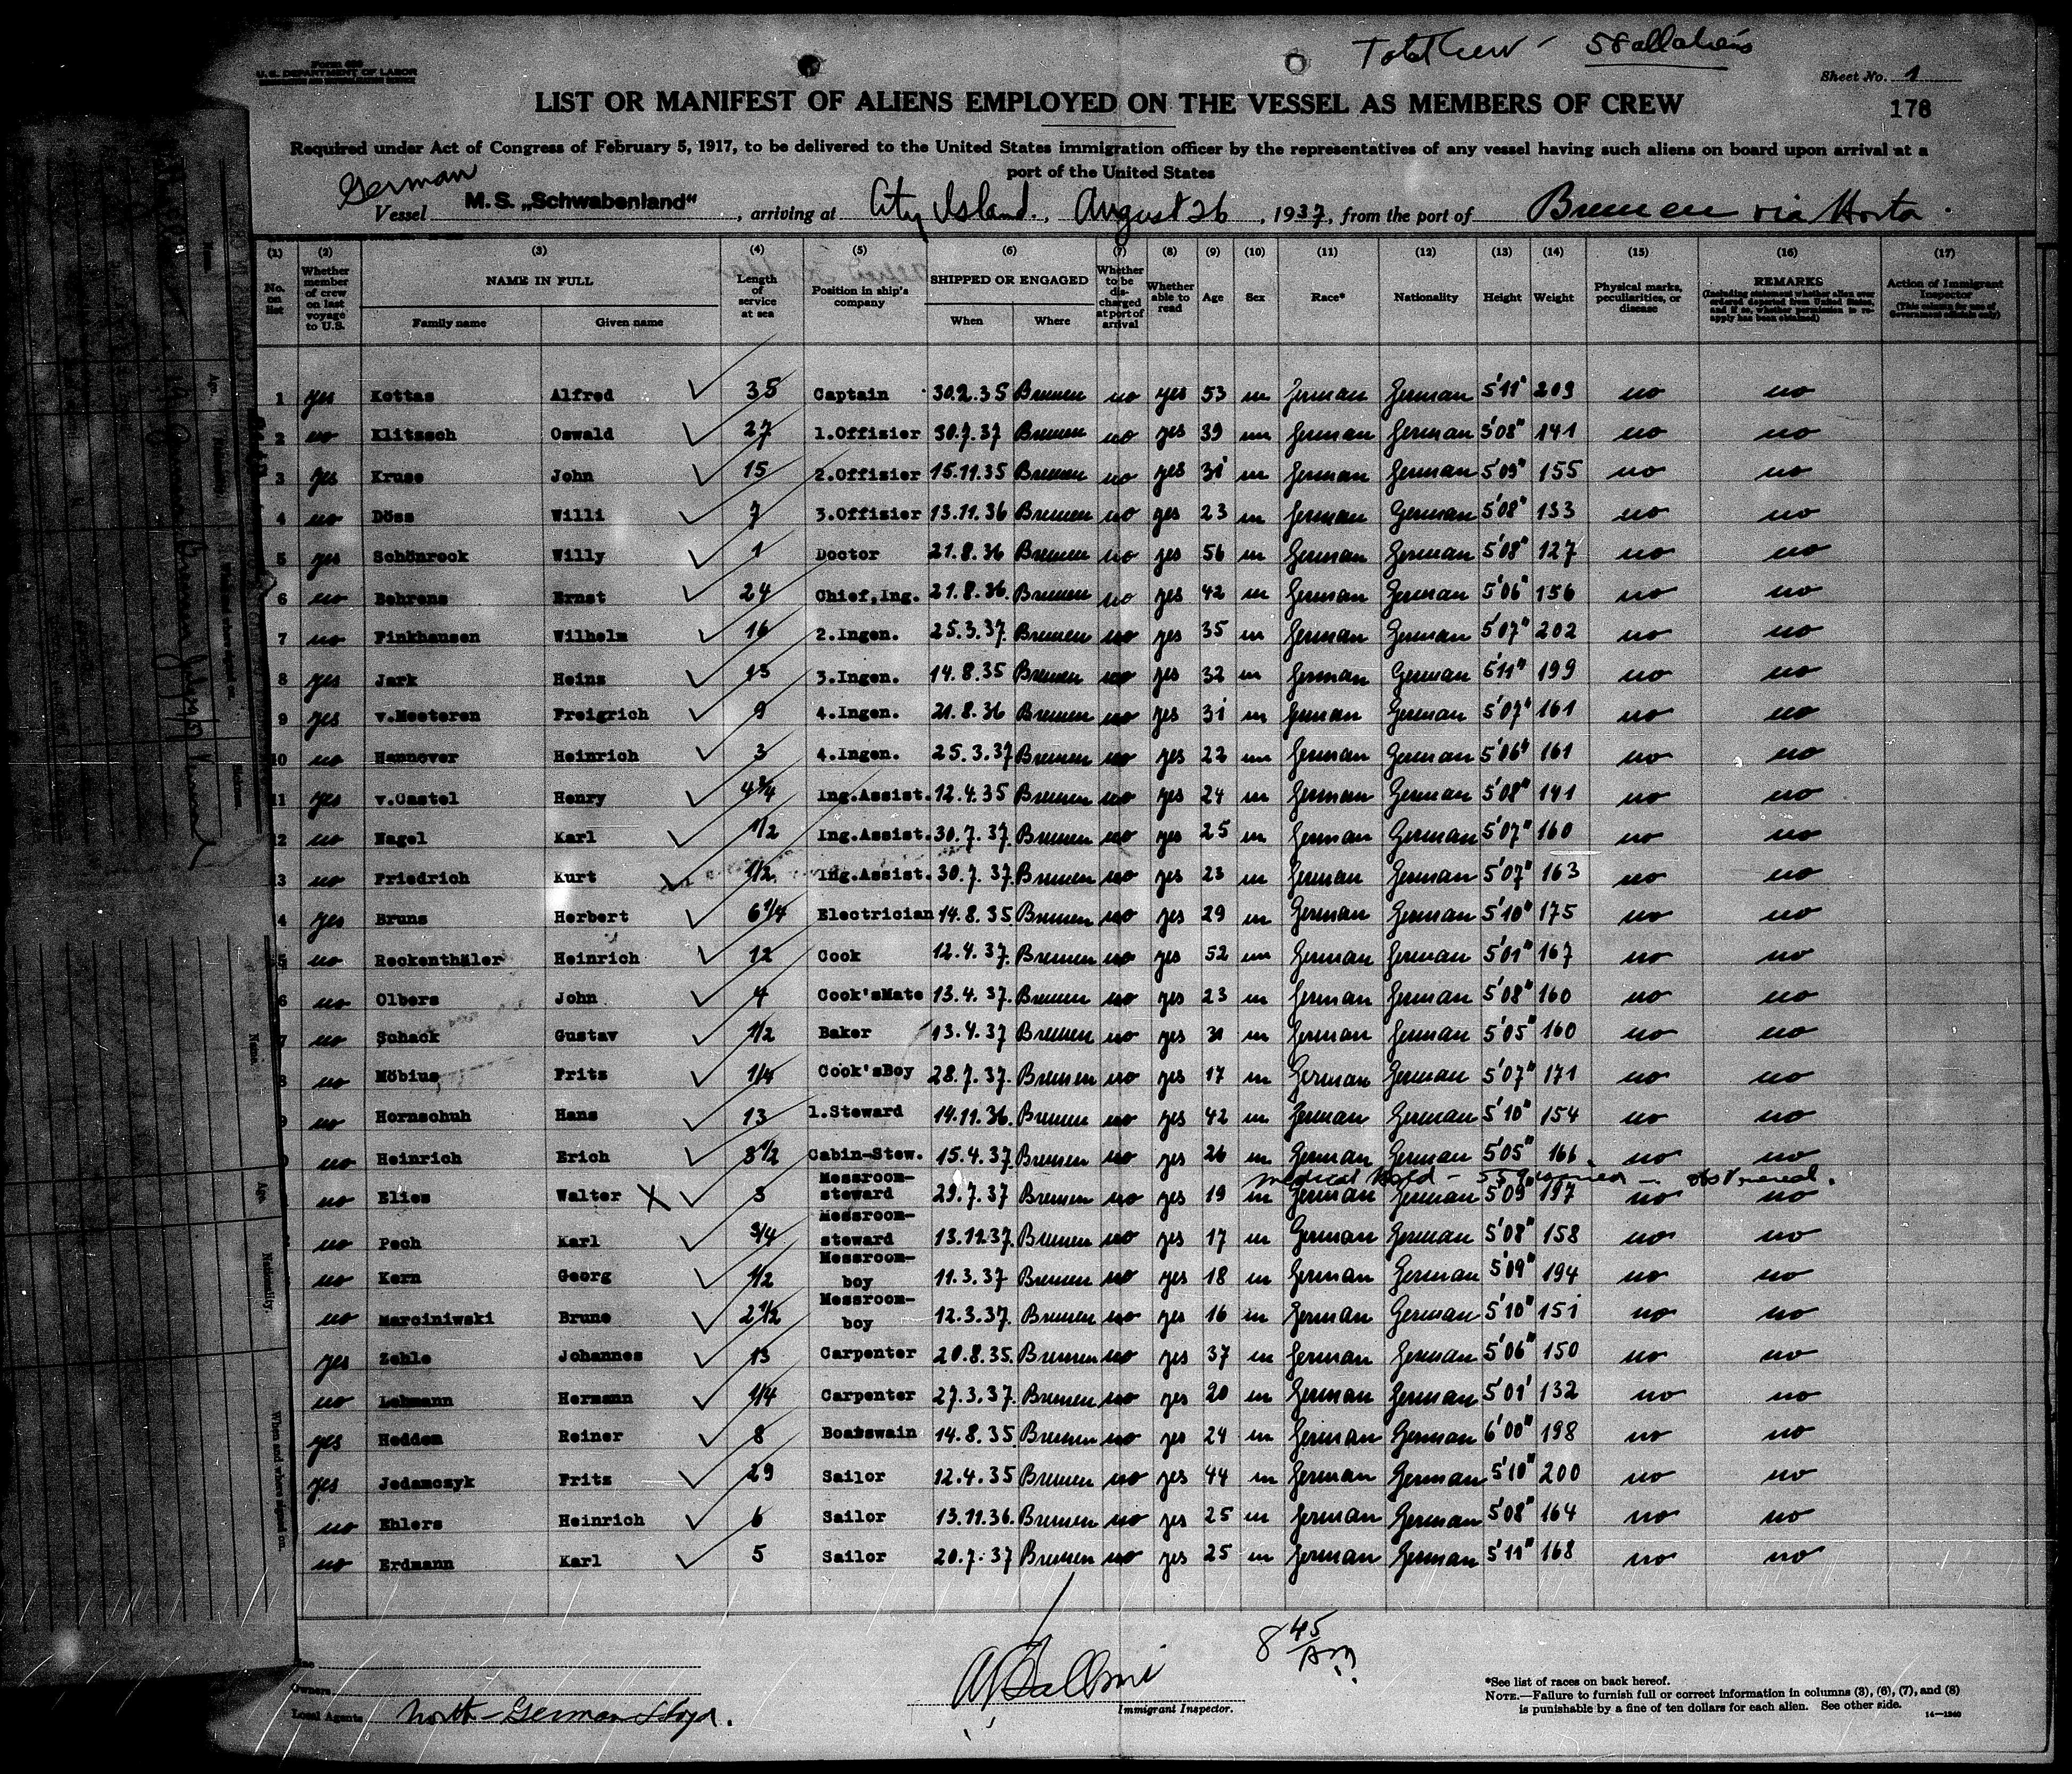 Total Crew - 58 all aliens
Form 680
U. S. DEPARTMENT OF LABOR
Sheet No. 1
LIST OR MANIFEST OF ALIENS EMPLOYED ON THE VESSEL AS MEMBERS OF CREW
178
Required under Act of Congress of February 5, 1917, to be delivered to the United States immigration officer by the representatives of any vessel having such aliens on board upon arrival at a
port of the United States
German
Vessel M. S. „Schwabenland“, arriving at City Island, August 26, 1937, from the port of Bremen via Horta.
(1) (2) (3) (4) (5) (6) (7) (8) (9) (10) (11) (12) (13) (14) (15) (16) (17)
No. on list Whether member of crew on last voyage to U.S. NAME IN FULL Family name Given name Length of service at sea Position in ship's company SHIPPED OR ENGAGED When Where Whether to be discharged at port of arrival Whether able to read Age Sex Race* Nationality Height Weight Physical marks, peculiarities, or disease REMARKS (Including statement whether alien ever ordered deported from United States, and if so, whether permission to reapply has been obtained) Action of Immigrant Inspector (This column for use of Government officials only)
1 yes Kottas Alfred 35 Captain 30.2.35 Bremen no yes 53 m German German 5'11" 209 no no
2 no Klitzsch Oswald 27 1.Offizier 30.7.37 Bremen no yes 39 m German German 5'08" 141 no no
3 yes Kruse John 15 2.Offizier 15.11.35 Bremen no yes 31 m German German 5'09" 155 no no
4 no Döss Willi 7 3.Offizier 13.11.36 Bremen no yes 23 m German German 5'08" 133 no no
5 yes Schönrock Willy 1 Doctor 21.8.36 Bremen no yes 56 m German German 5'08" 127 no no
6 no Behrens Ernst 24 Chief,Ing. 21.8.36. Bremen no yes 42 m German German 5'06" 156 no no
7 no Finkhausen Wilhelm 16 2.Ingen. 25.3.37. Bremen no yes 35 m German German 5'07" 202 no no
8 yes Jark Heinz 13 3.Ingen. 14.8.35 Bremen no yes 32 m German German 6'11" 199 no no
9 yes v.Meeteren Freigrich 9 4.Ingen. 21.8.36 Bremen no yes 31 m German German 5'07" 161 no no
10 no Hannover Heinrich 3 4.Ingen. 25.3.37 Bremen no yes 22 m German German 5'06" 161 no no
11 yes v.Castel Henry 4 3/4 Ing.Assist. 12.4.35 Bremen no yes 24 m German German 5'08" 141 no no
12 no Nagel Karl 1/2 Ing.Assist. 30.7.37. Bremen no yes 25 m German German 5'07" 160 no no
13 no Friedrich Kurt 1/2 Ing.Assist. 30.7.37. Bremen no yes 23 m German German 5'07" 163 no no
4 yes Bruns Herbert 6 1/4 Electrician 14.8.35 Bremen no yes 29 m German German 5'10" 175 no no
5 no Reckenthäler Heinrich 12 Cook 12.4.37. Bremen no yes 52 m German German 5'01" 167 no no
6 no Olbers John 4 Cook'sMate 13.4.37. Bremen no yes 23 m German German 5'08" 160 no no
7 no Schack Gustav 1/2 Baker 13.4.37 Bremen no yes 31 m German German 5'05" 160 no no
8 no Möbius Fritz 1/4 Cook'sBoy 28.7.37. Bremen no yes 17 m German German 5'07" 171 no no
9 no Hornschuh Hans 13 1.Steward 14.11.36. Bremen no yes 42 m German German 5'10" 154 no no
no Heinrich Erich 3 1/2 Cabin-Stew. 15.4.37 Bremen no yes 26 m German German 5'05" 166 no no
Medical Hold
no Elies Walter X 3 Messroom-steward 29.7.37 Bremen no yes 19 m German German 5'09" 197 no no
no Pech Karl 3/4 Messroom-steward 13.11.37. Bremen no yes 17 m German German 5'08" 158 no no
no Kern Georg 1/2 Messroom-boy 11.3.37 Bremen no yes 18 m German German 5'09" 194 no no
no Marciniwski Bruno 2 1/2 Messroom-boy 12.3.37. Bremen no yes 16 m German German 5'10" 151 no no
yes Zehle Johannes 13 Carpenter 20.8.35. Bremen no yes 37 m German German 5'06" 150 no no
no Lehmann Hermann 1/4 Carpenter 27.3.37. Bremen no yes 20 m German German 5'01" 132 no no
yes Heddem Reiner 8 Boatswain 14.8.35. Bremen no yes 24 m German German 6'00" 198 no no
yes Jedamczyk Fritz 29 Sailor 12.4.35 Bremen no yes 44 m German German 5'10" 200 no no
no Ehlers Heinrich 6 Sailor 13.11.36. Bremen no yes 25 m German German 5'08" 164 no no
no Erdmann Karl 5 Sailor 20.7.37 Bremen no yes 25 m German German 5'11" 168 no no
8 45 AM
Owners
Local Agents North-German Lloyd.
Immigrant Inspector.
*See list of races on back hereof.
NOTE.—Failure to furnish full or correct information in columns (3), (6), (7), and (8)
is punishable by a fine of ten dollars for each alien. See other side. 14—1240